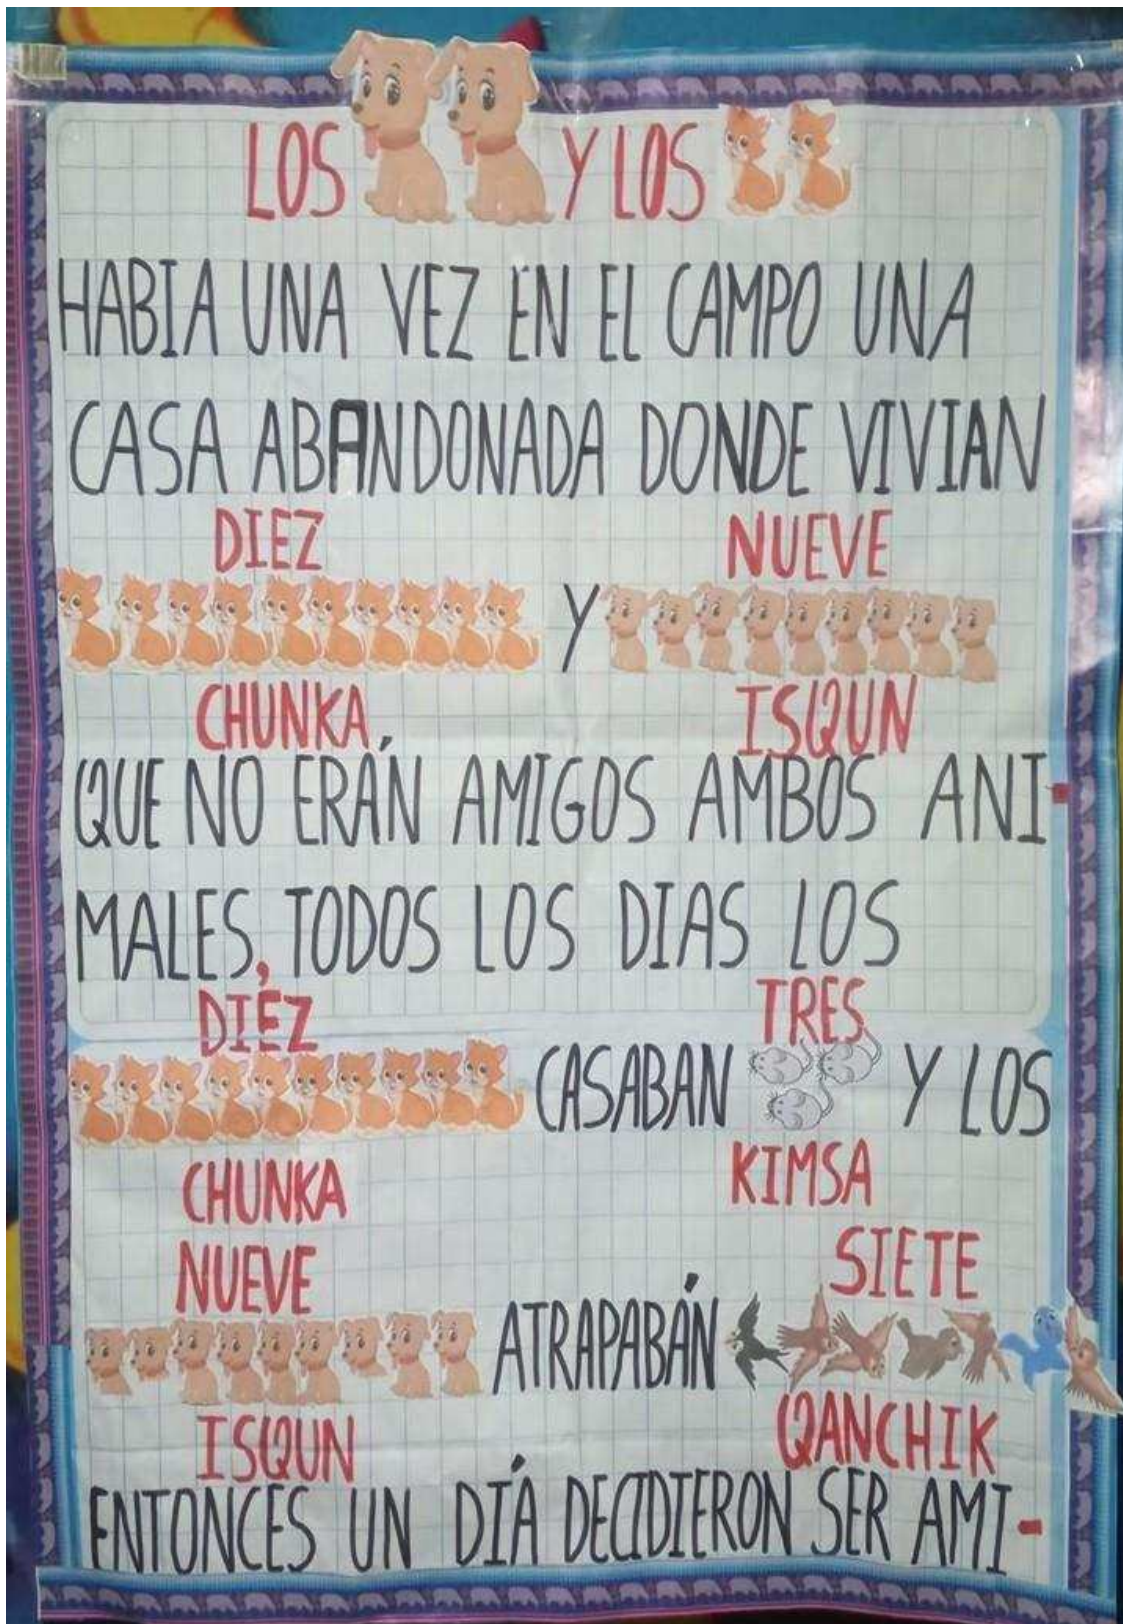 LOS Y LOS
HABIA UNA VEZ EN EL CAMPO UNA
CASA ABANDONADA DONDE VIVIAN
DIEZ NUEVE
Y
CHUNKA ISQUN
QUE NO ERÁN AMIGOS AMBOS ANI-
MALES, TODOS LOS DIAS LOS
DIEZ TRES
CASABAN Y LOS
CHUNKA KIMSA
NUEVE SIETE
ATRAPABÁN
ISQUN QANCHIK
ENTONCES UN DÍA DECIDIERON SER AMI-